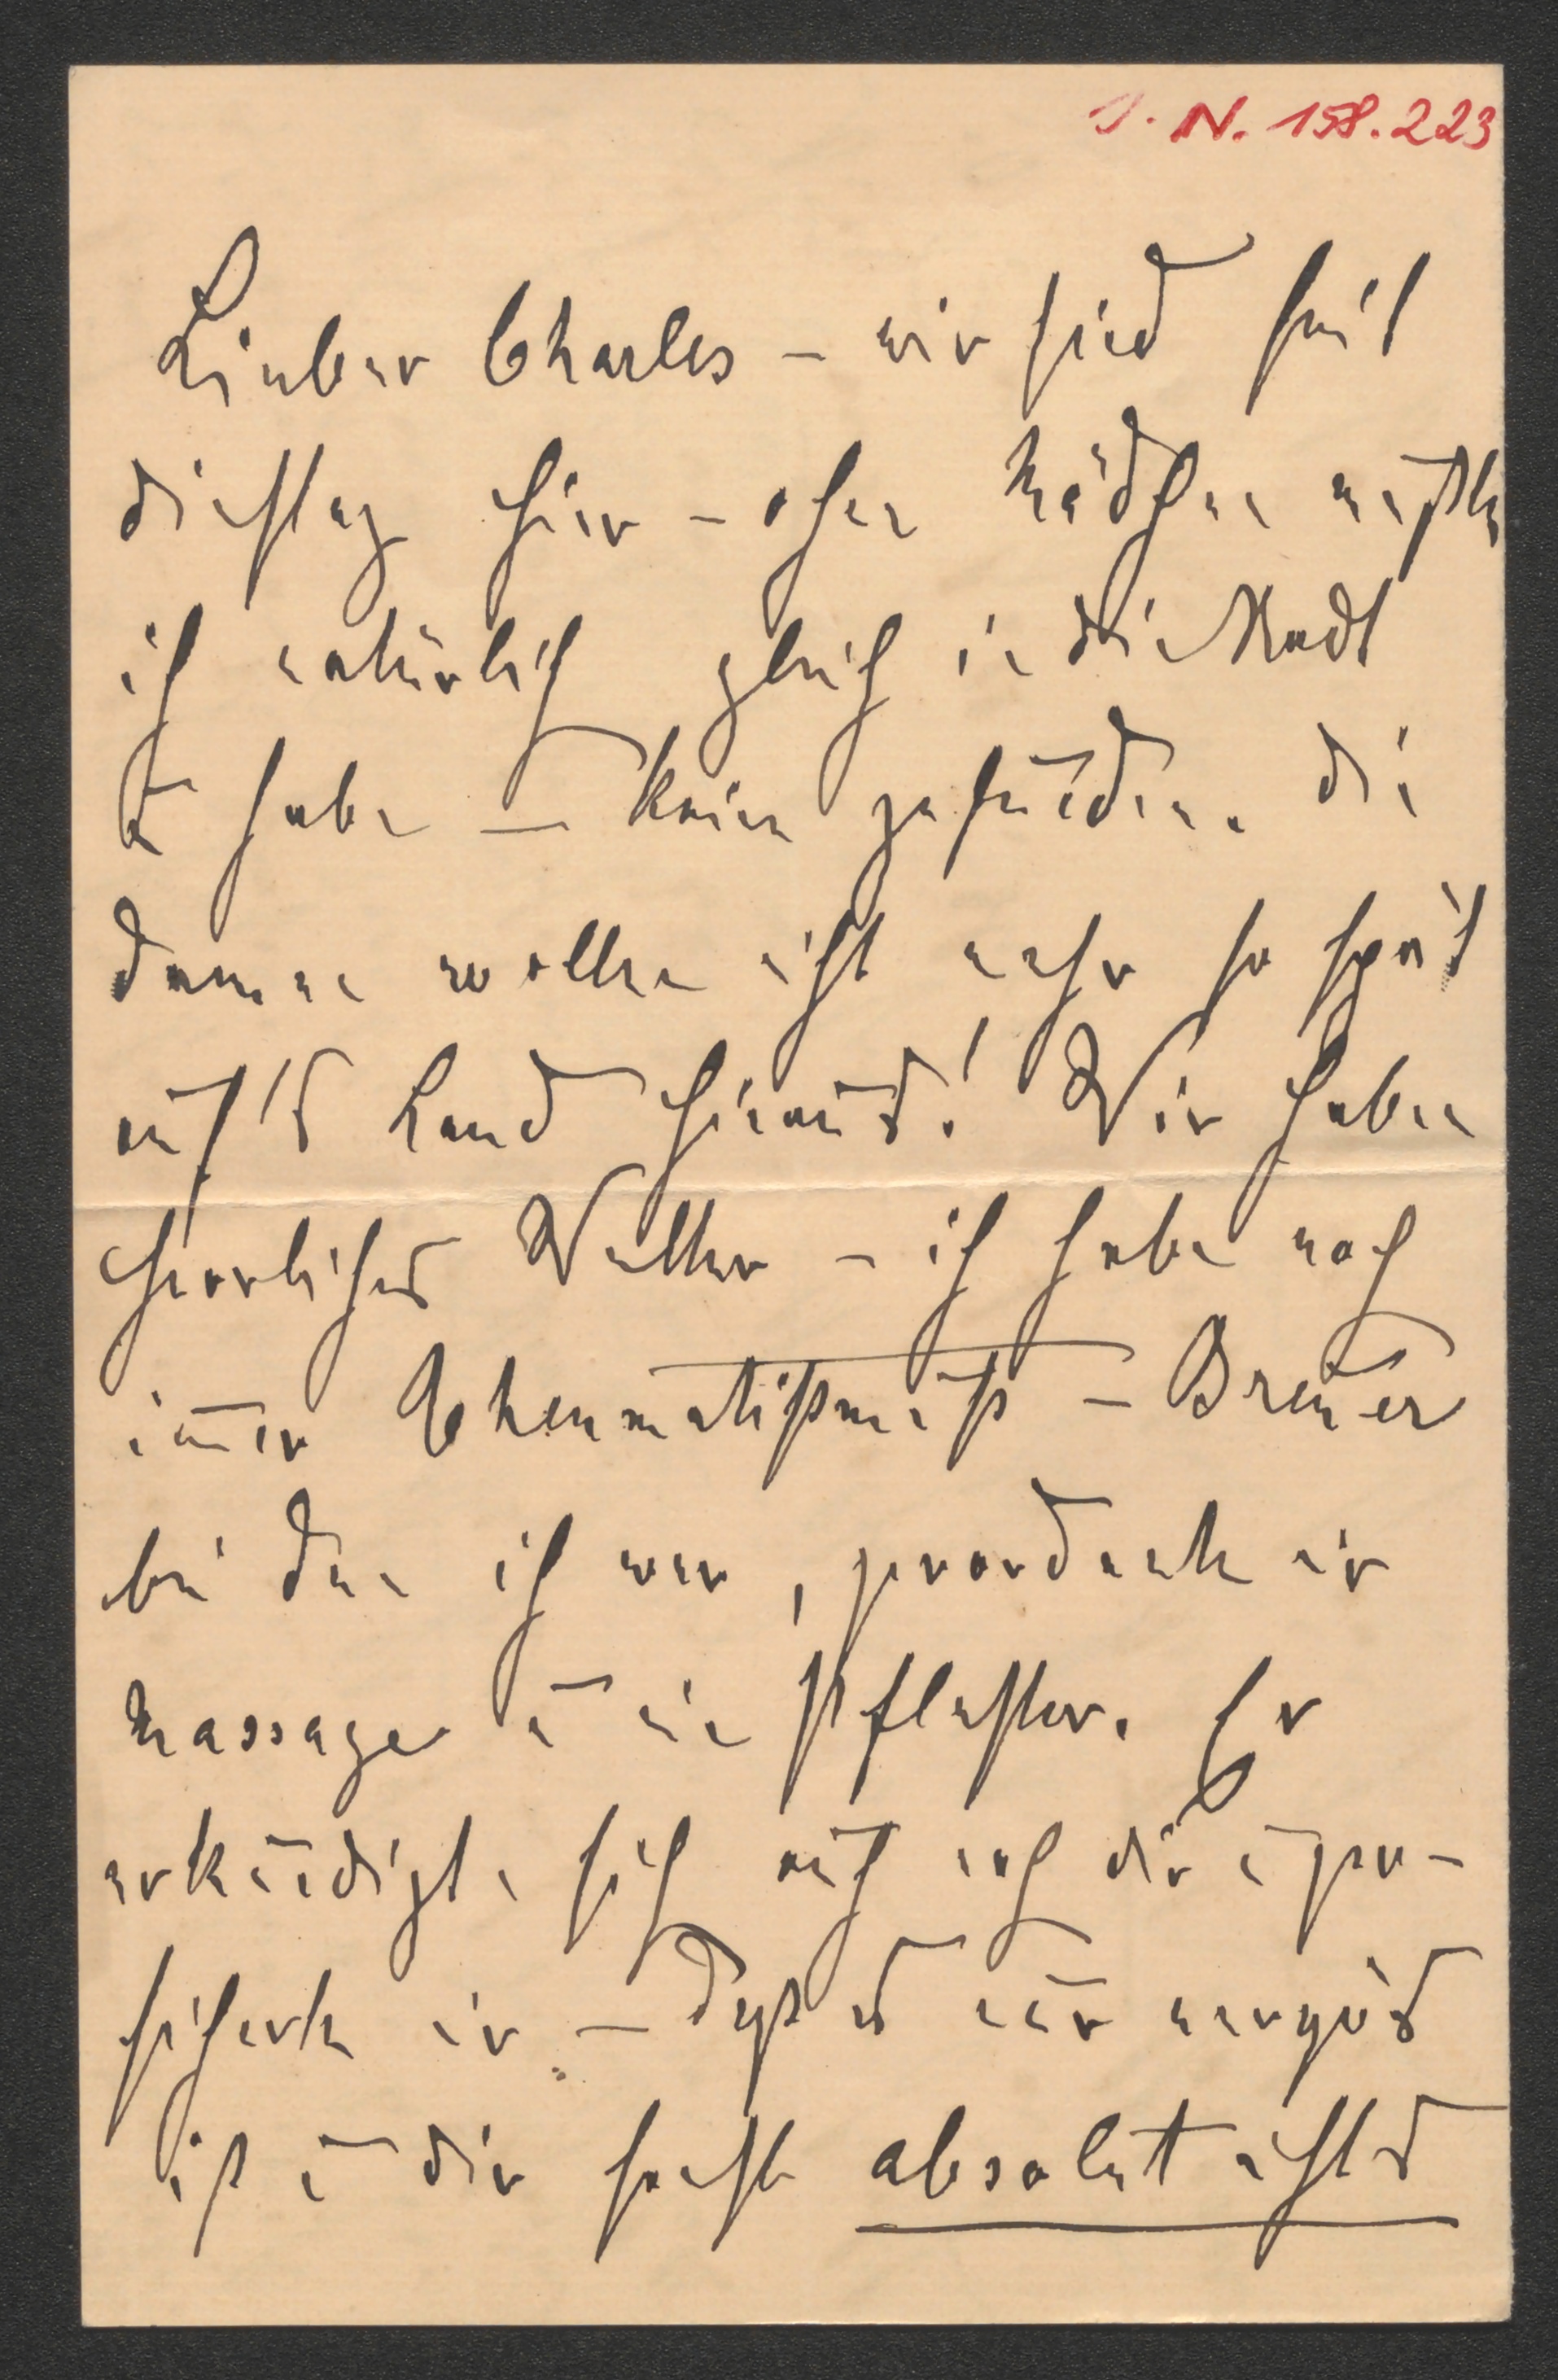 J. N. 158.223
Lieber Charles – wir sind seit
Dienstag hier – ohne Mädchen mußte
ich natürlich gleich in die Stadt
u habe – keine gefunden. Die
Damen wollen nicht mehr so spät
auf's Land hinaus! Wir haben
herrliches Wetter – ich habe noch
im̅er Rheumatißmuß – Breuer
bei dem ich war, verordnete mir
Massage u ein Pflaster. Er
erkundigte sich auch nach dir u ver-
sicherte mir – daß es nur nervös
ist u dir sonst absolut nichts